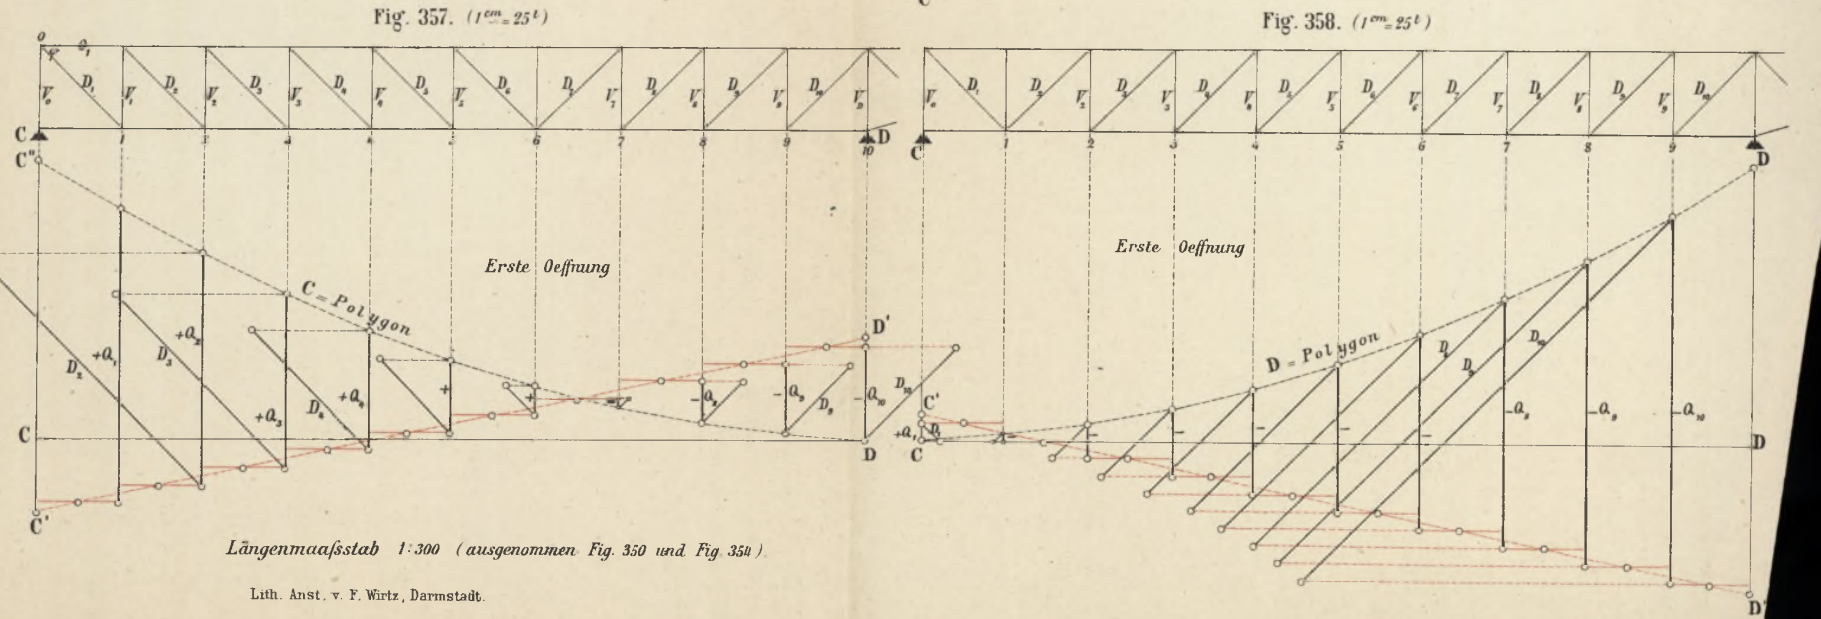 Fig. 357. (1cm = 25t)
0 V0 D1 V1 D2 V2 D3 V3 D4 V4 D5 V5 D6 D7 V7 D8 V8 D9 V9 D10
C 1 2 3 4 5 6 7 8 9 10 D
C"
Erste Oeffnung
C = Polygon
D2 +Q1 D3 +Q2 +Q3 D4 +Q4 + + - -Q8 -Q9 D9 -Q10 D10
D'
C D
C'
Längenmaaſsstab 1:300 (ausgenommen Fig. 350 und Fig. 354)
Lith. Anst. v. F. Wirtz, Darmstadt.
Fig. 358. (1cm = 25t)
V0 D1 D2 V2 D3 V3 D4 V4 D5 V5 D6 V6 D7 V7 D8 V8 D9 V9 D10
C 1 2 3 4 5 6 7 8 9 D
Erste Oeffnung
D = Polygon
D8 D9 D10
C'
+Q1 D1 - - - - - - -Q8 -Q9 -Q10
C D
D'